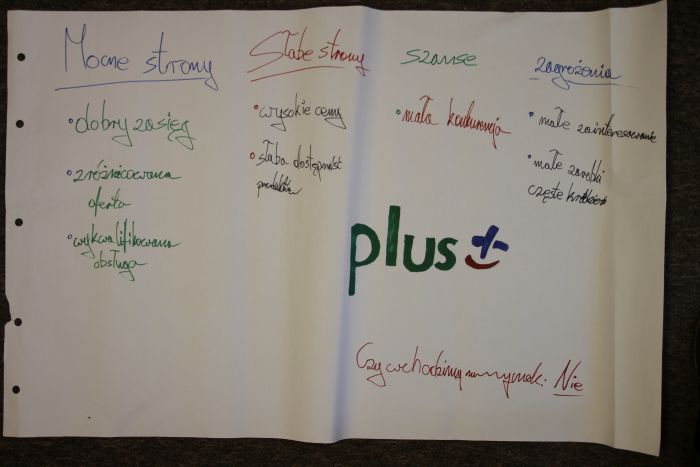 Mocne strony
dobry zasięg
zróżnicowana
oferta
wykwalifikowana
obsługa
Słabe strony
wysokie ceny
słaba dostępność
produktów
szanse
mała konkurencja
zagrożenia
małe zainteresowanie
małe zarobki
częste
plus
Czy wchodzimy na rynek: Nie